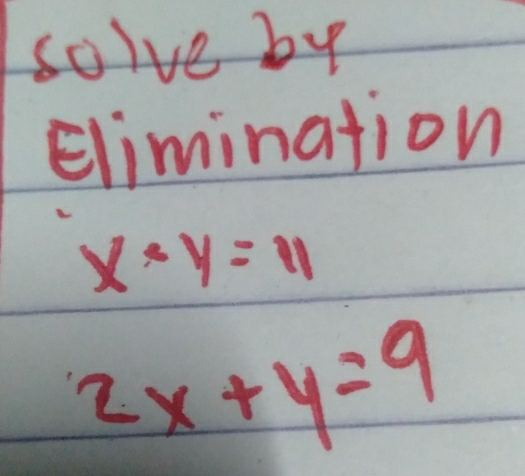 solve by
Elimination
x - y = 11
2x + y = 9